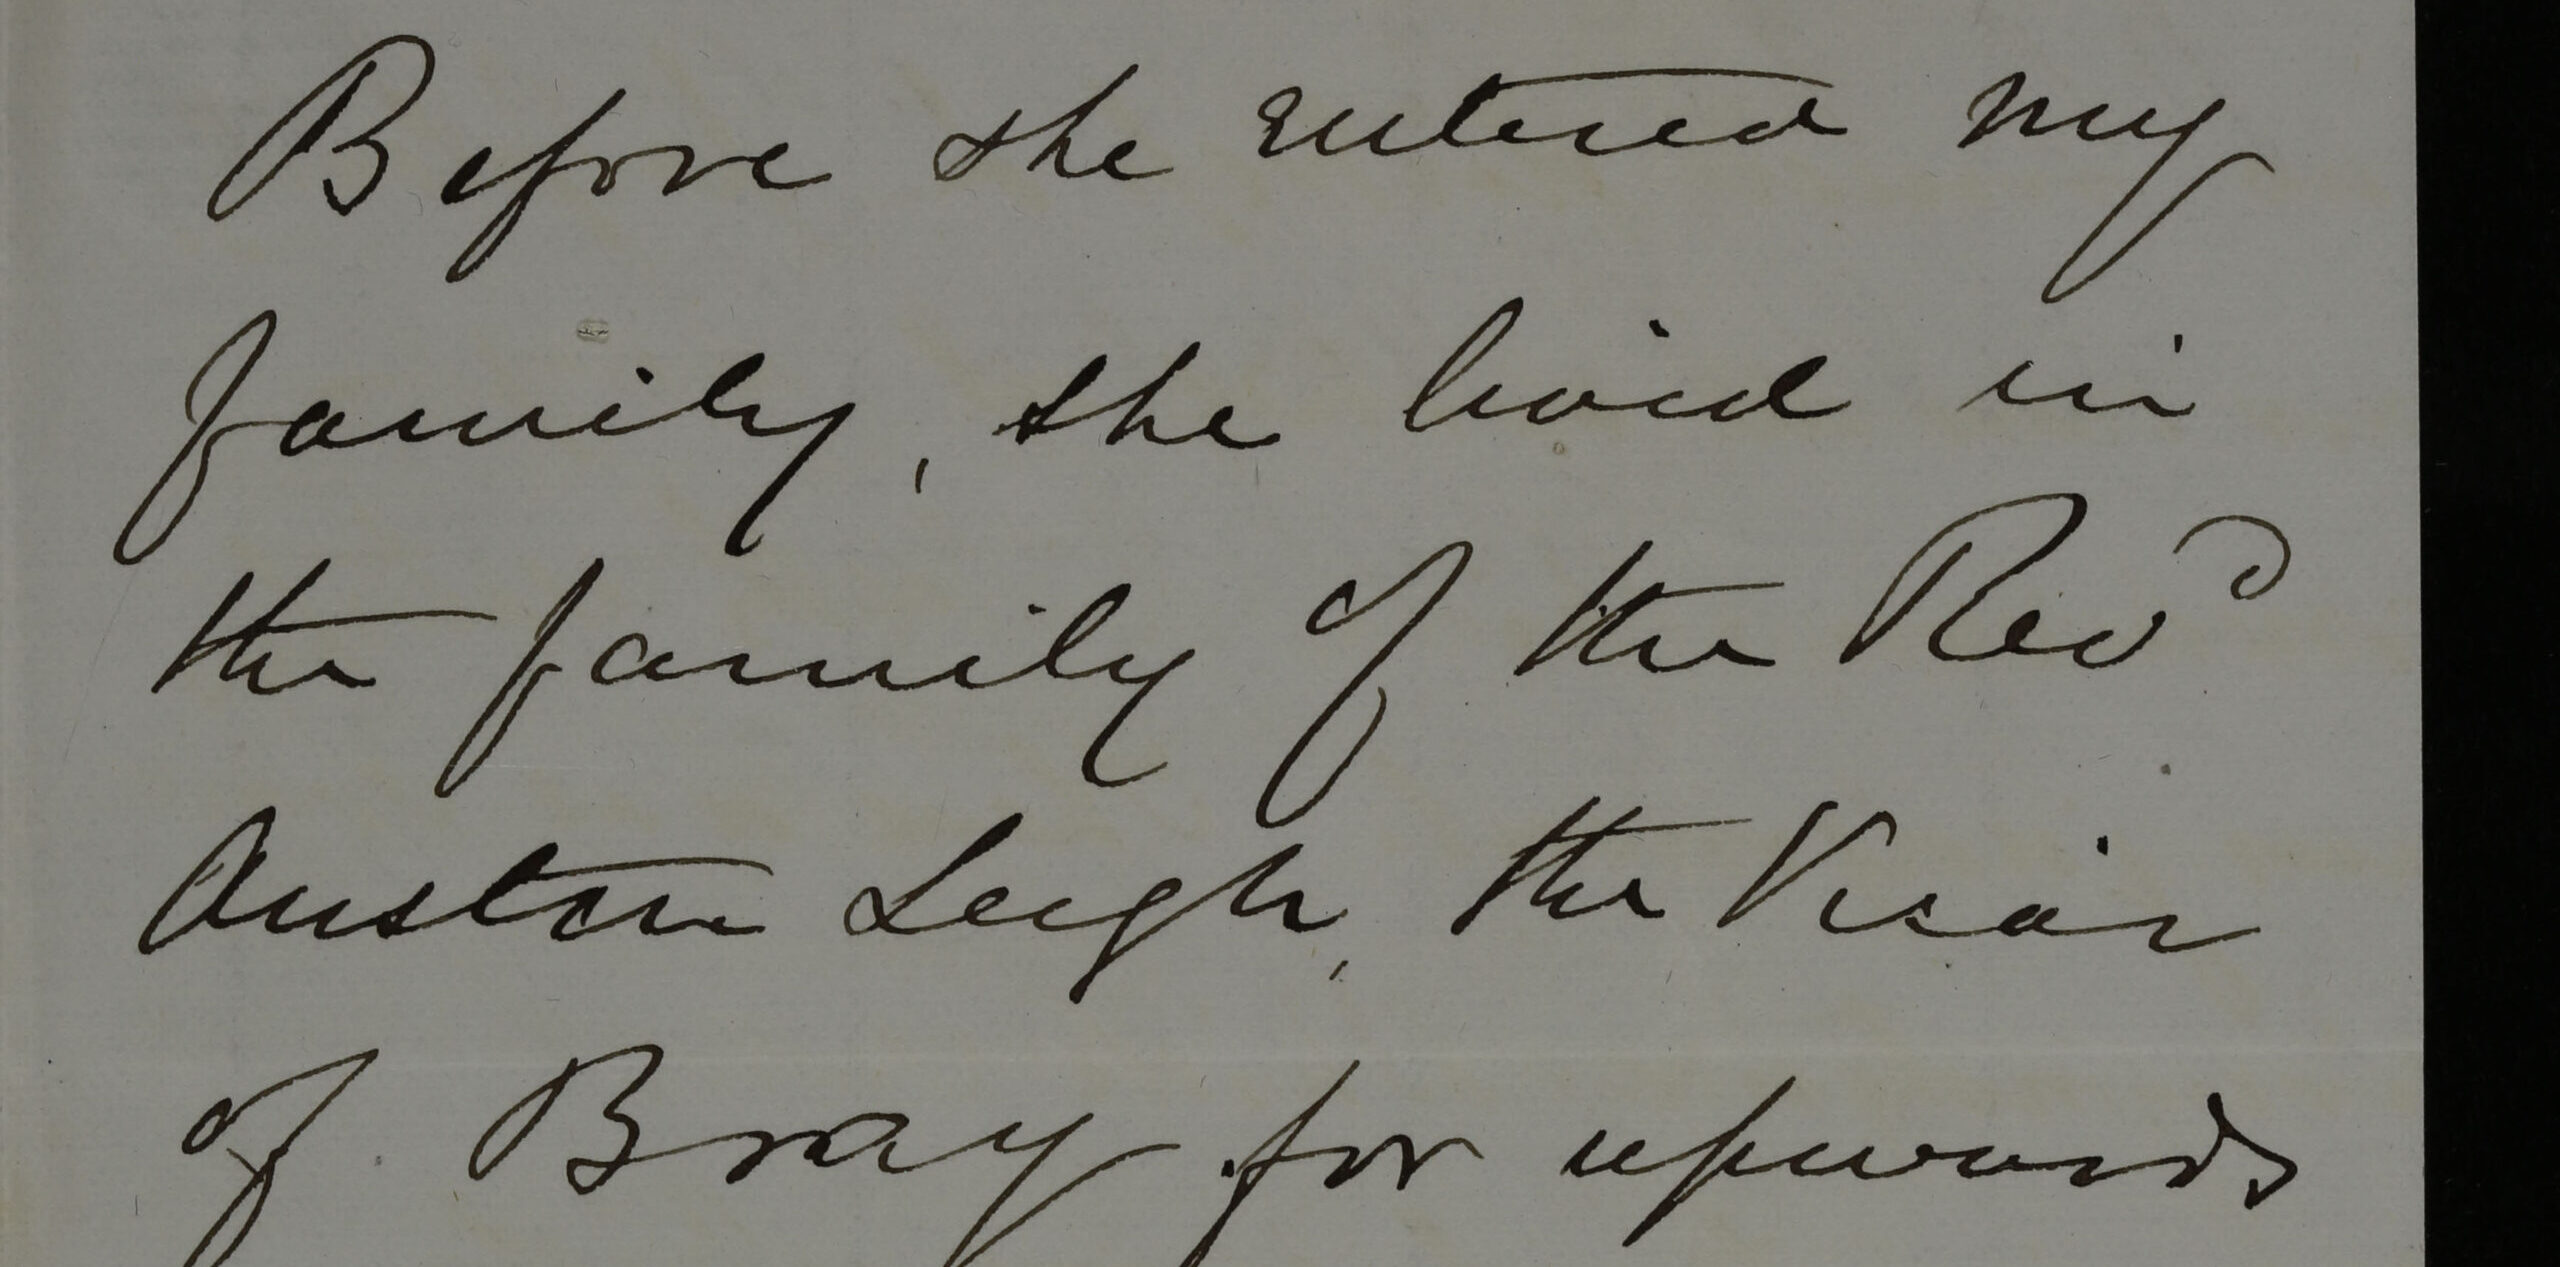 Before she entered my
family, she lived in
the family of the Revd
Austen Leigh, the Vicar
of Bray for upwards